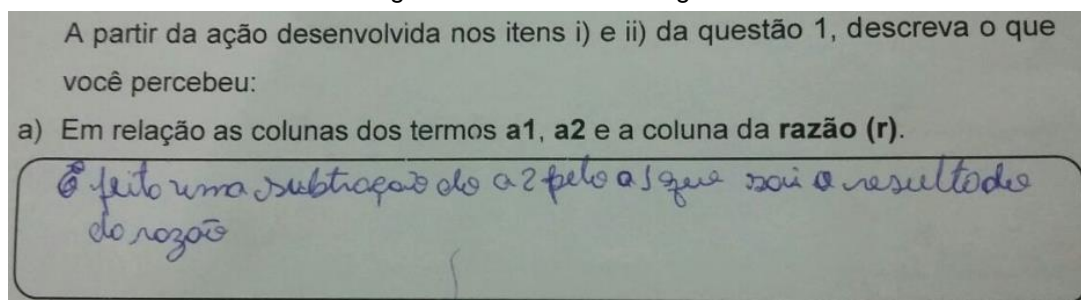 A partir da ação desenvolvida nos itens i) e ii) da questão 1, descreva o que
você percebeu:
a) Em relação as colunas dos termos a1, a2 e a coluna da razão (r).
É feito uma subtração do a2 pelo a1 que sai o resultado
da razão